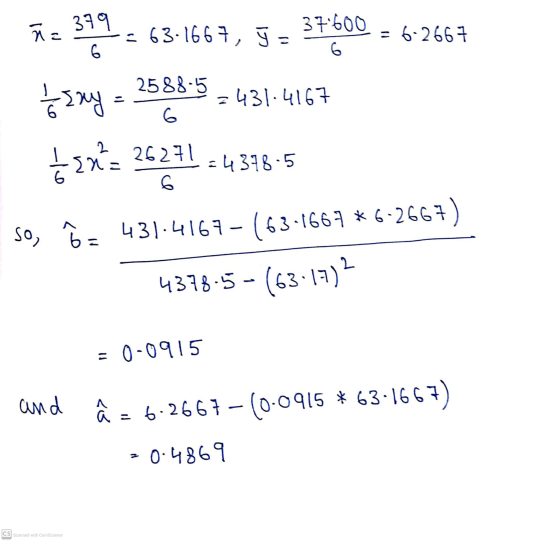 x̄ = 379/6 = 63.1667, ȳ = 37.600/6 = 6.2667
1/6 Σxy = 2588.5/6 = 431.4167
1/6 Σx² = 26271/6 = 4378.5
so, b̂ = (431.4167 - (63.1667 * 6.2667))/(4378.5 - (63.17)²)
= 0.0915
and â = 6.2667 - (0.0915 * 63.1667)
= 0.4869
CS Scanned with CamScanner